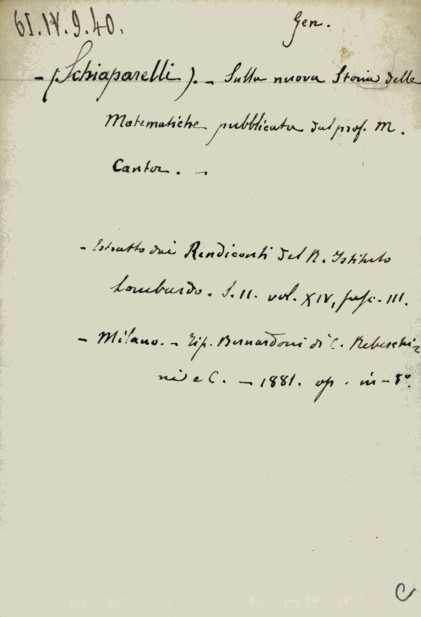 61.IV.9.40.
Gen.
- (Schiaparelli). - Sulla nuova Storia delle
Matematiche pubblicata dal prof. M.
Cantor. -
- Estratto dai Rendiconti del R. Istituto
Lombardo. S. II. vol. XIV, fasc. III.
- Milano. - Tip. Bernardoni di C. Rebeschi-
ni e C. - 1881. op. in-8°.
C